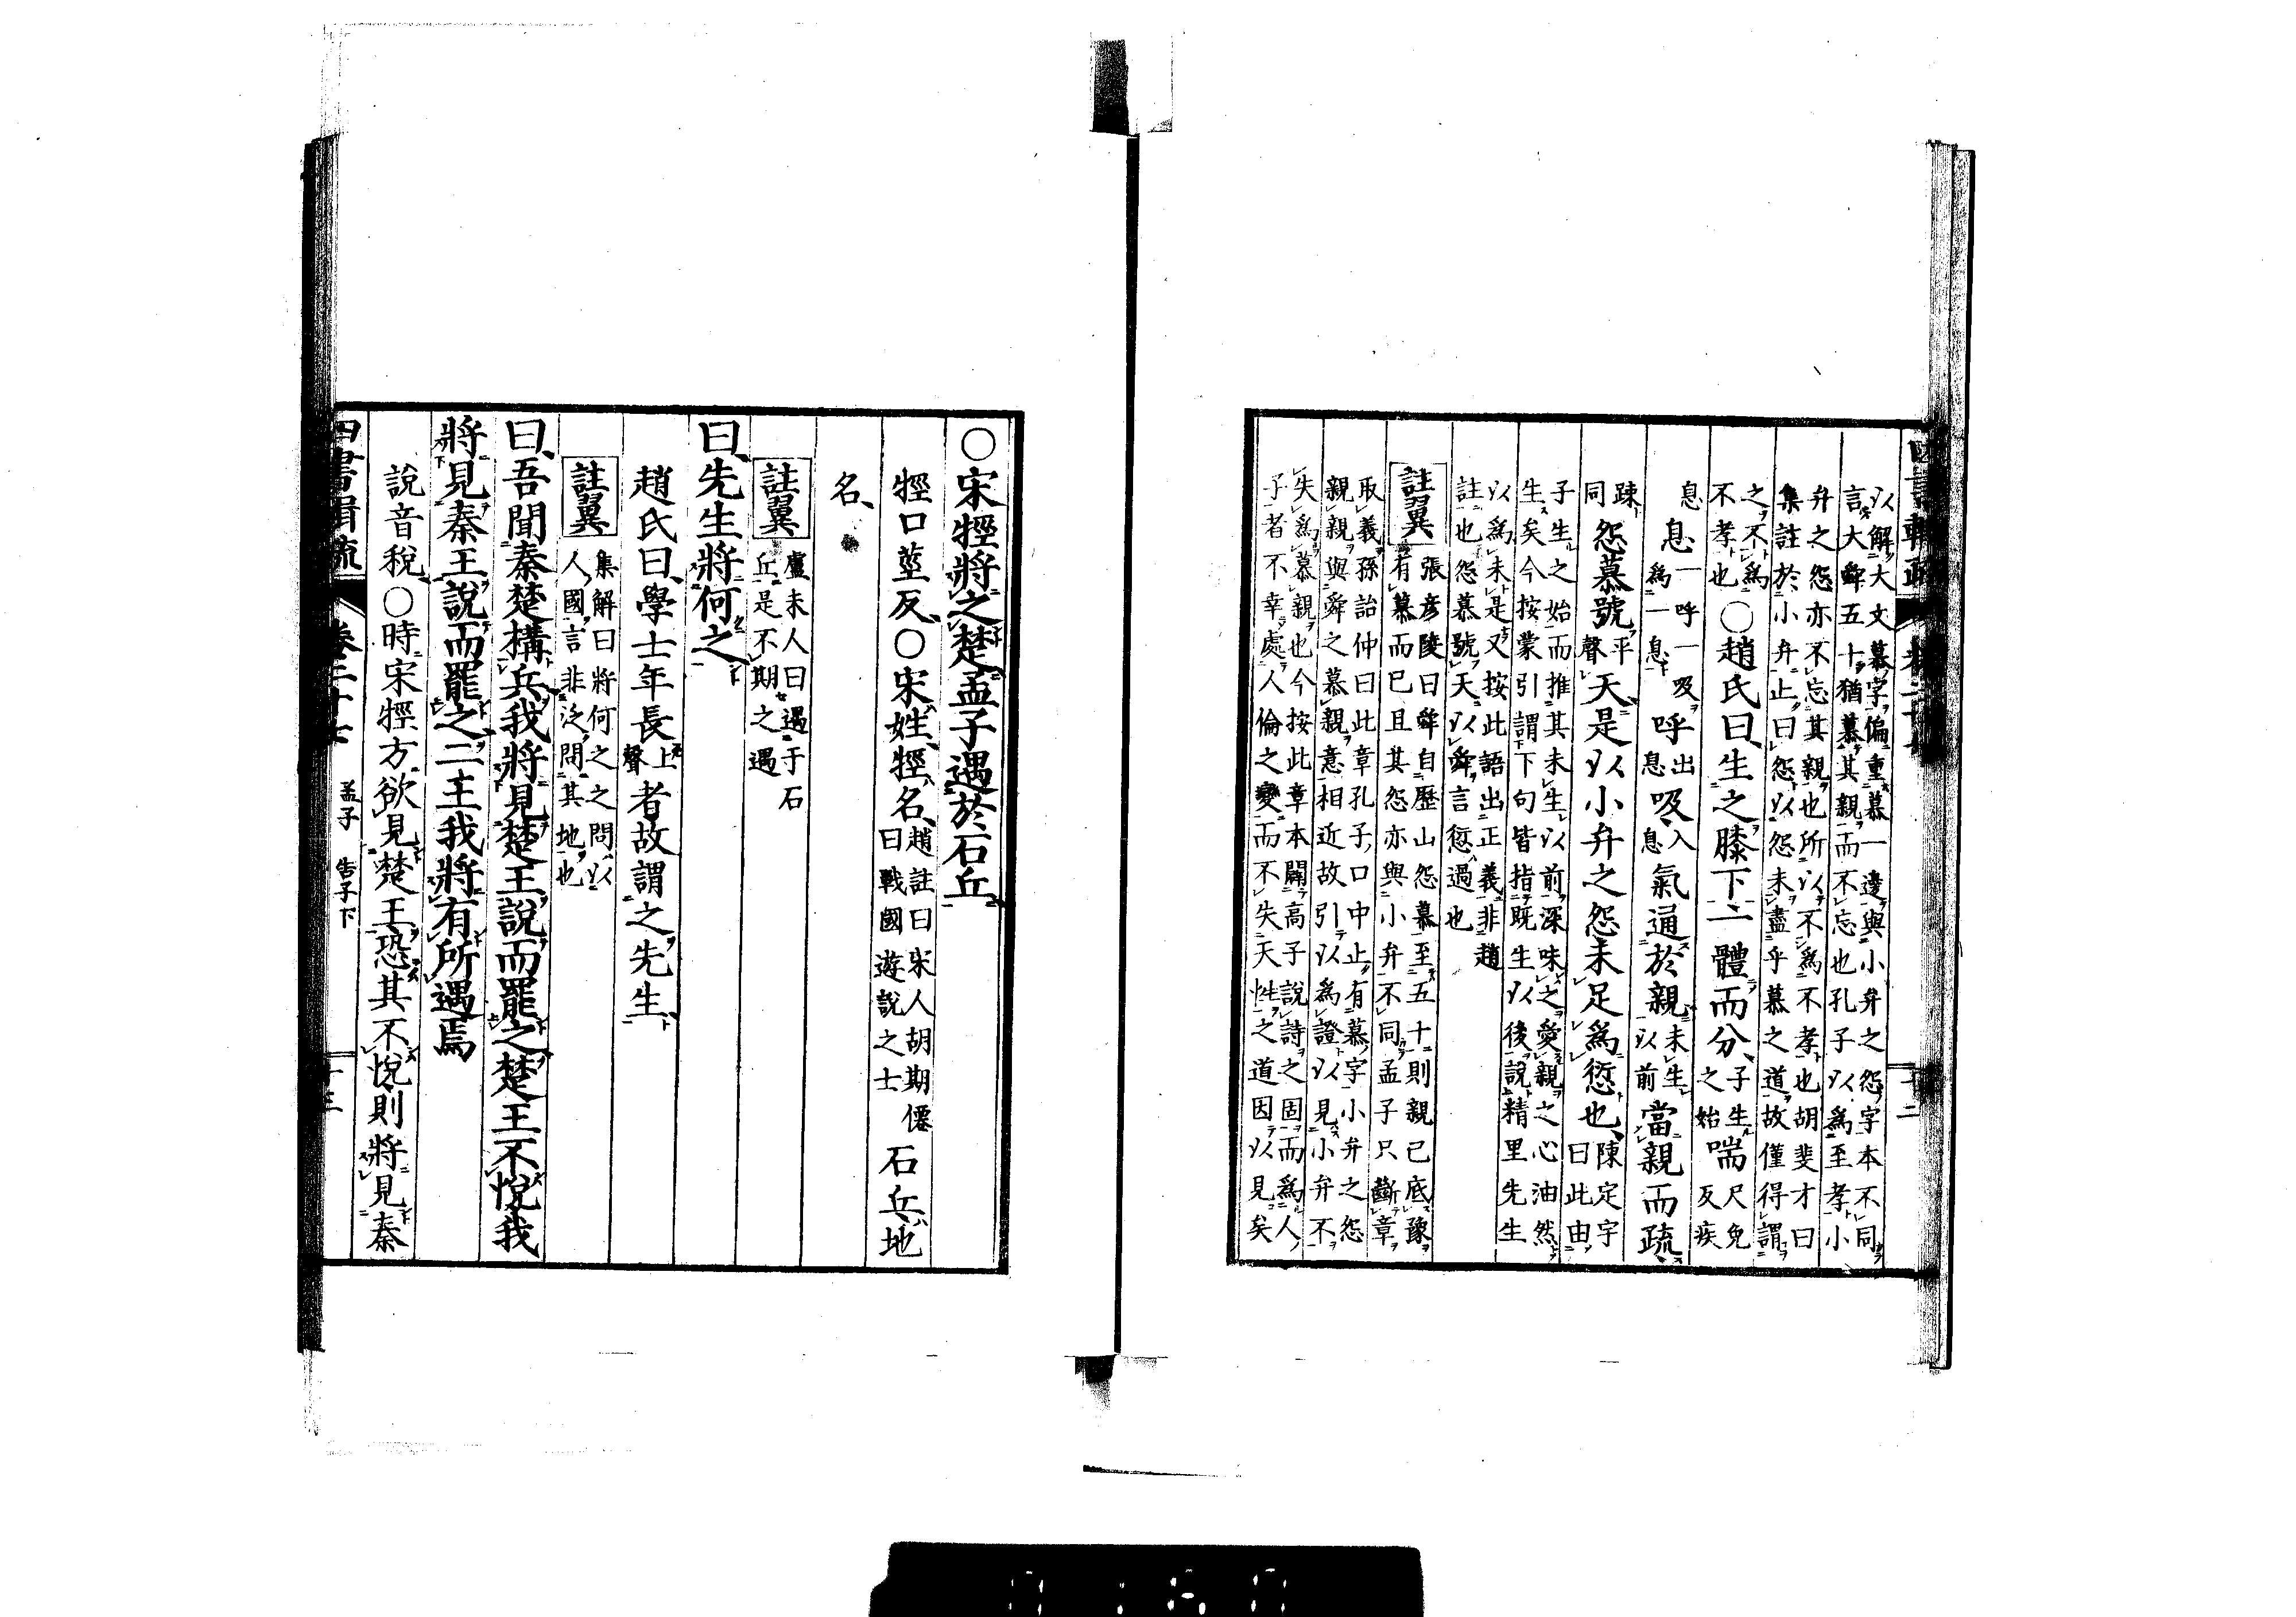 四書輯疏 卷二十七 十二
以解大文慕字偏重慕一邊與小弁之怨字本不同
言大舜五十猶慕其親而不忘也孔子以爲至孝小
弁之怨亦不忘其親也所以不爲不孝也胡斐才曰
集註於小弁止曰怨以怨未盡乎慕之道故僅得謂
之不爲不孝也○趙氏曰生之膝下一體而分子生之始喘尺免反疾
息息一呼一吸爲一息呼出息吸入息氣通於親未生以前當親而疏
踈同怨慕號平聲天是以小弁之怨未足爲愆也陳定宇曰此由
子生之始而推其未生以前深味之愛親之心油然
生矣今按蒙引謂下句皆指既生以後說精里先生
以爲未是又按此語出正義非趙
註也怨慕號天以舜言愆過也
註翼 張彥陵曰舜自歷山怨慕至五十則親已底豫
有慕而已且其怨亦與小弁不同孟子只斷章
取義孫詒仲曰此章孔子口中止有慕字小弁之怨
親親與舜之慕親意相近故引以爲證以見小弁不
失爲慕親也今按此章本闢高子說詩之固而爲人
子者不幸處人倫之變而不失天性之道因以見矣
○宋牼將之楚孟子遇於石丘
牼口莖反○宋姓牼名趙註曰宋人胡期僊曰戰國遊說之士石丘地
名
註翼 盧未人曰遇于石
丘是不期之遇
曰先生將何之
趙氏曰學士年長上聲者故謂之先生
註翼 集解曰將何之之問以
人國言非泛問其地也
曰吾聞秦楚構兵我將見楚王說而罷之楚王不悅我
將見秦王說而罷之二王我將有所遇焉
說音稅○時宋牼方欲見楚王恐其不悅則將見秦
四書輯疏 卷二十七 孟子 告子下 十三